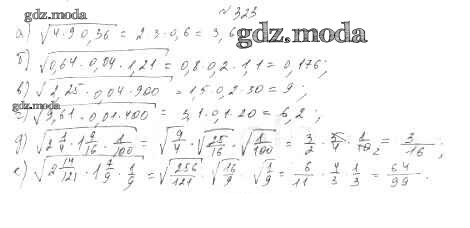 gdz.moda
№ 323
а) √(4·9·0,36) = 2·3·0,6 = 3,6
gdz.moda
б) √(0,64·0,04·1,21) = 0,8·0,2·1,1 = 0,176;
в) √(2,25·0,04·900) = 1,5·0,2·30 = 9;
gdz.moda
г) √(9,61·0,01·400) = 3,1·0,1·20 = 6,2;
д) √(2 1/4 · 1 9/16 · 1/100) = √(9/4) · √(25/16) · √(1/100) = 3/2 · 5/4 · 1/10 = 3/16;
е) √(2 14/121 · 1 7/9 · 1/9) = √(256/121) · √(16/9) · √(1/9) = /11 · 4/3 · 1/3 = 64/99.